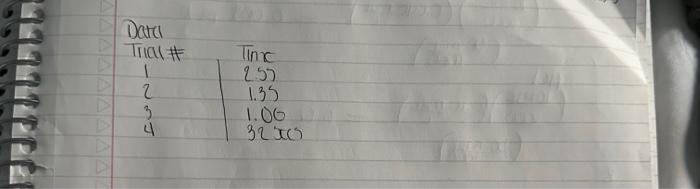 Data
Trial # Time
1 2.57
2 1.35
3 1.06
4 32